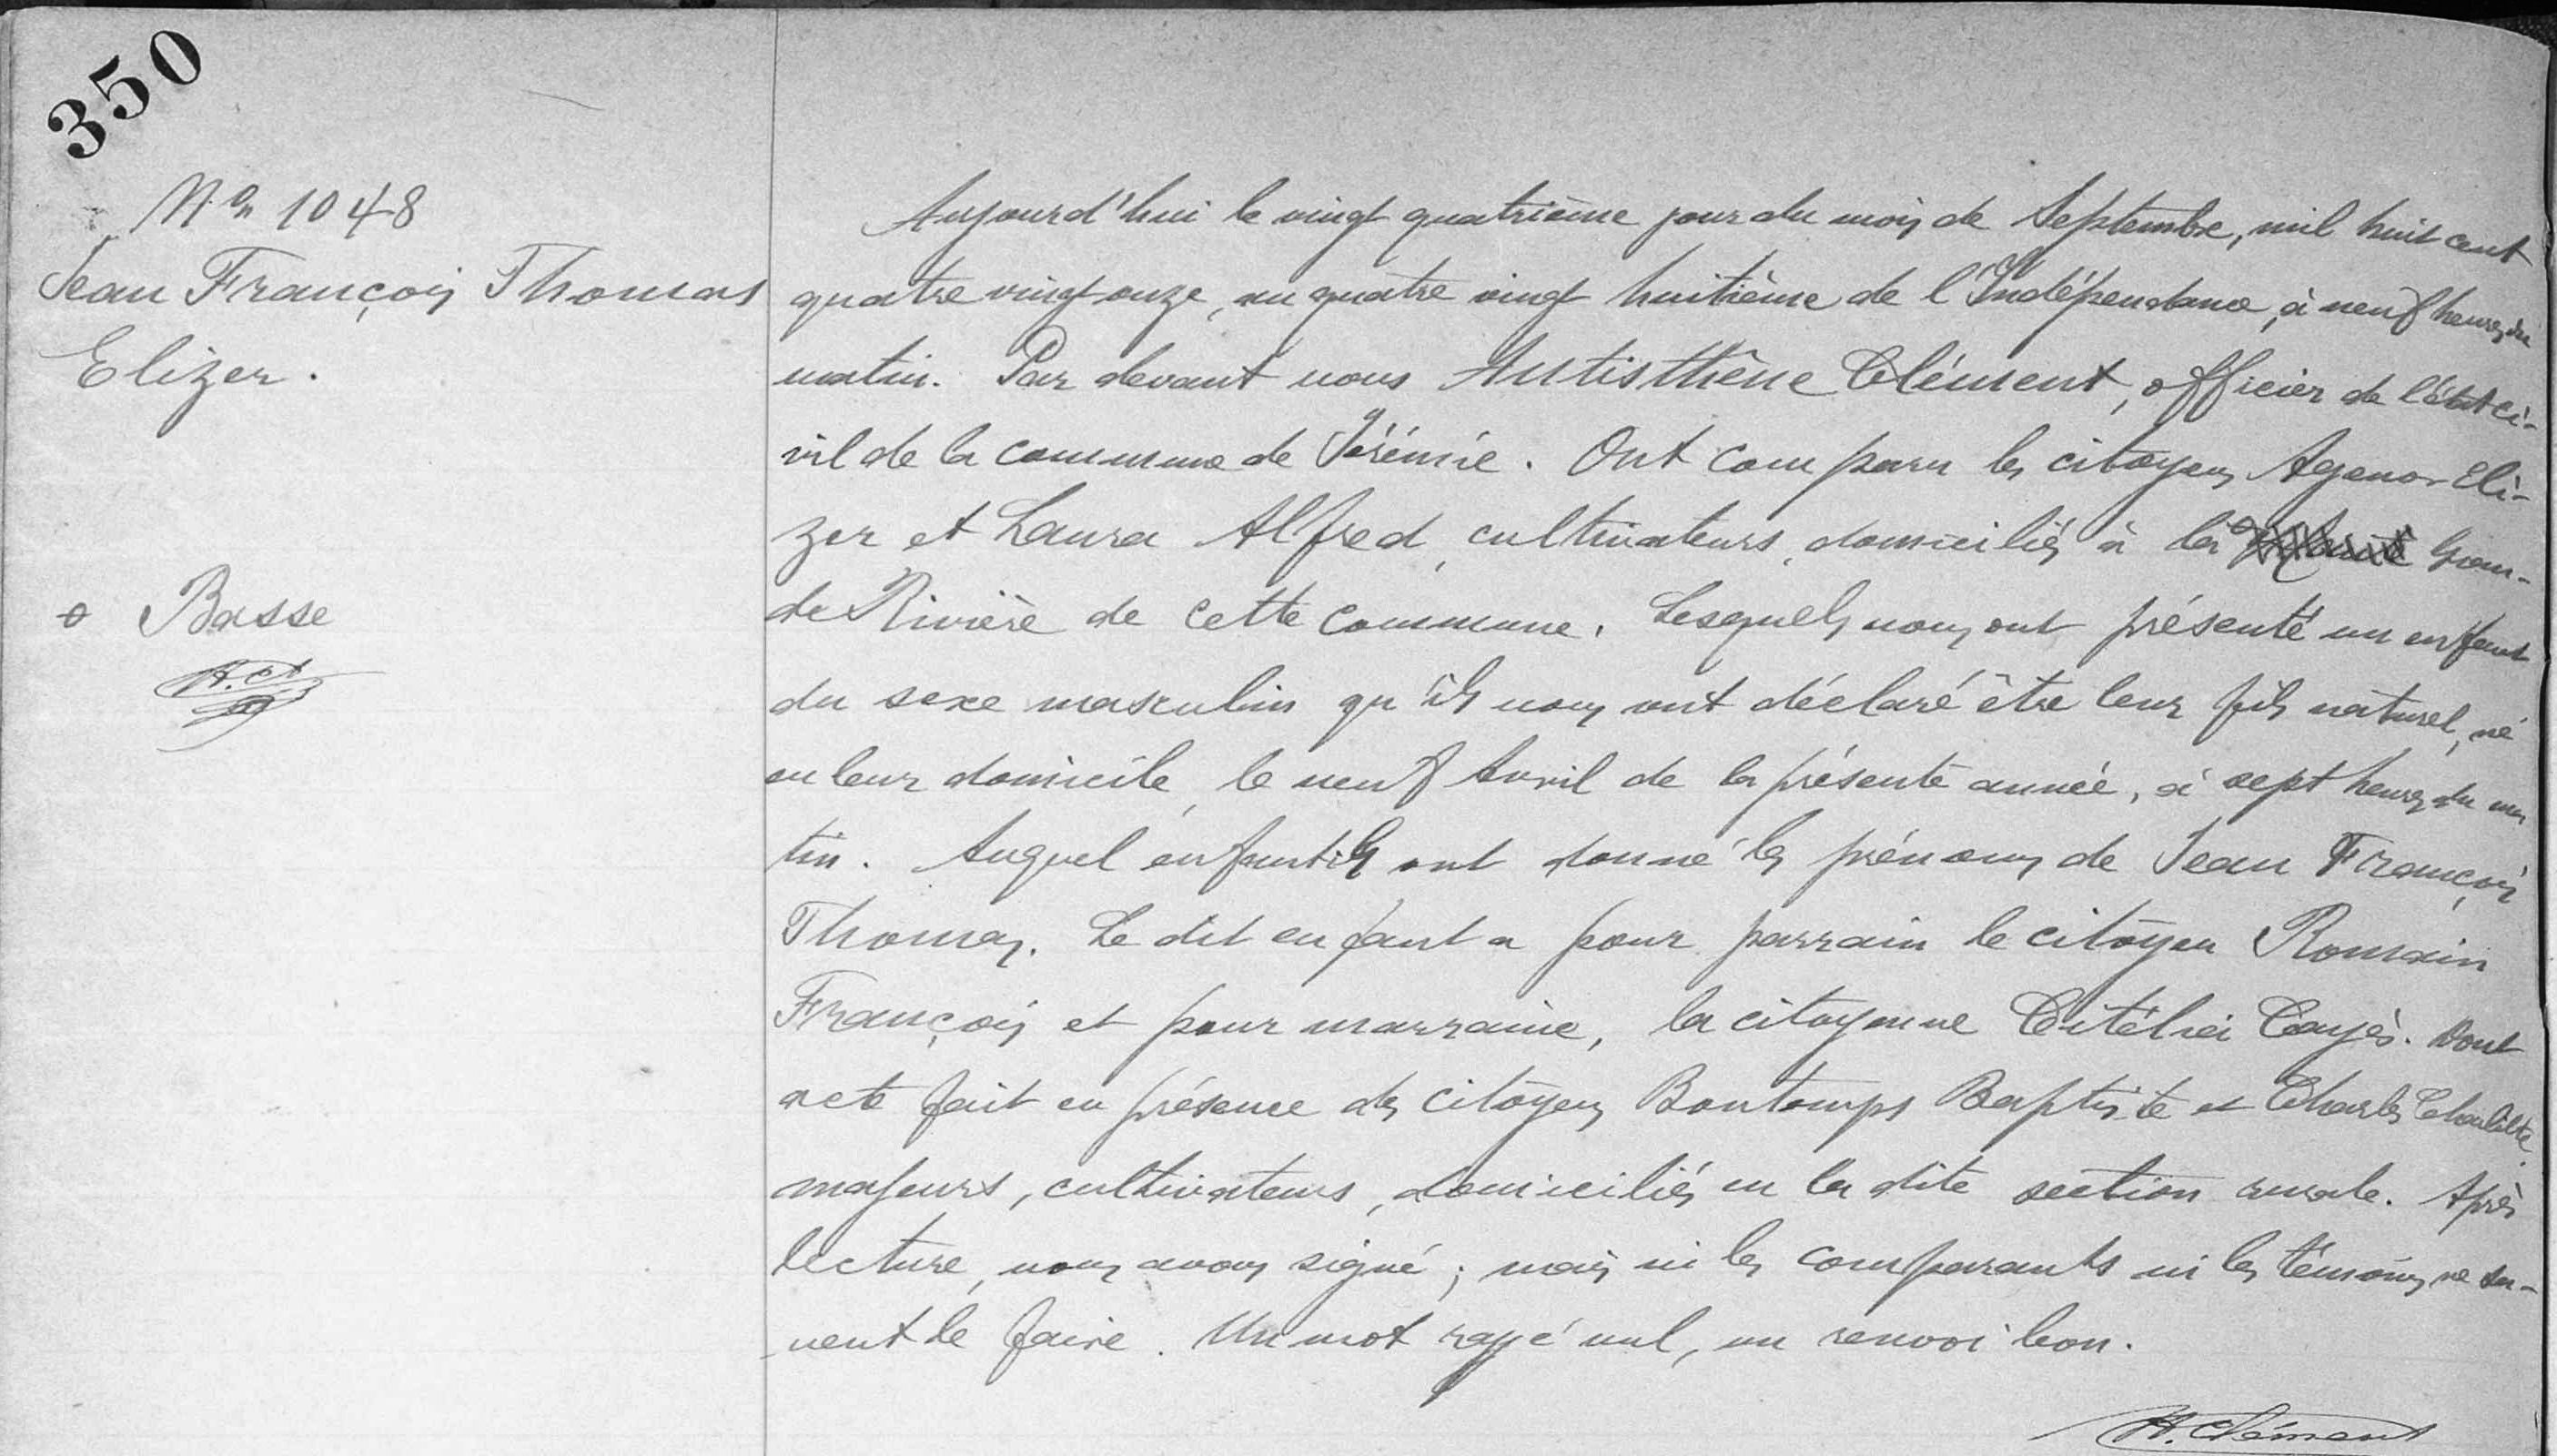 350
No 1048
Jean François Thomas
Elizer.
ꝋ Basse
A. Ct
Aujourd'hui le vingt quatrième jour du mois de Septembre, mil huit cent
quatre vingt onze, au quatre vingt huitième de l'Indépendance, à neuf heures du
matin. Par devant nous Antisthène Clément, officier de l'état ci-
vil de la commune de Jérémie. Ont comparu les citoyens Agenor Eli-
zer et Laura Alfred, cultivateurs, domiciliés à la Gran-
de Rivière de cette commune. Lesquels nous ont présenté un enfant
du sexe masculin qu'ils nous ont déclaré être leur fils naturel, né
en leur domicile, le neuf Avril de la présente année, à sept heures du ma
tin. Auquel enfant ils ont donné les prénoms de Jean François
Thomas. Le dit enfant a pour parrain le citoyen Romain
François et pour marraine, la citoyenne Dont
acte fait en présence des citoyens Bontemps Baptiste et Charles
majeurs, cultivateurs, domiciliés en la dite section rurale. Après
lecture, nous avons signé; mais ni les comparants ni les témoins ne sa-
vent le faire. Un mot rayé nul, un renvoi bon.
A. Clément